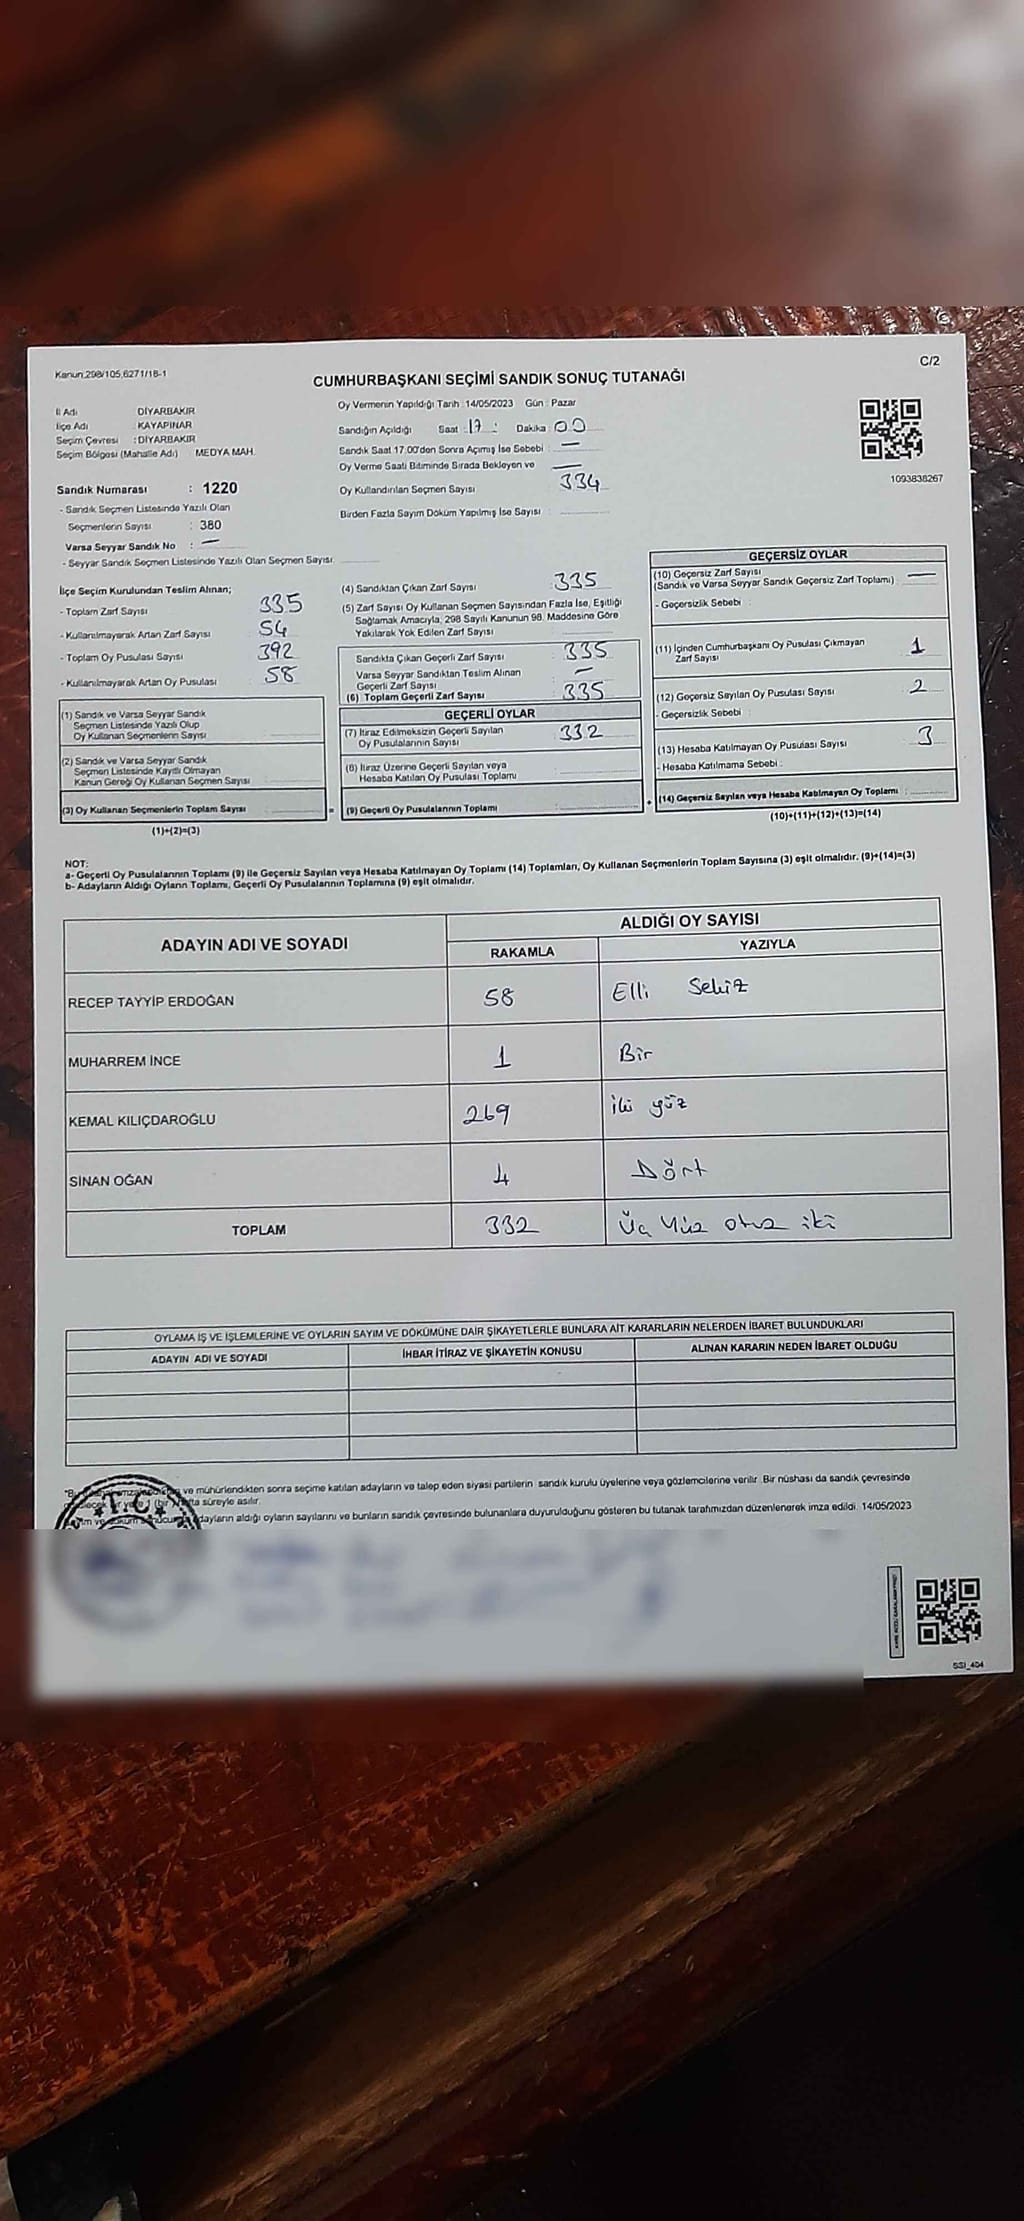 Kanun:298/105,6271/18-1
C/2
CUMHURBAŞKANI SEÇİMİ SANDIK SONUÇ TUTANAĞI
İl Adı DİYARBAKIR
İlçe Adı : KAYAPINAR
Seçim Çevresi : DİYARBAKIR
Seçim Bölgesi (Mahalle Adı) MEDYA MAH.
Sandık Numarası : 1220
- Sandık Seçmen Listesinde Yazılı Olan
Seçmenlerin Sayısı : 380
Varsa Seyyar Sandık No : —
- Seyyar Sandık Seçmen Listesinde Yazılı Olan Seçmen Sayısı
Oy Vermenin Yapıldığı Tarih : 14/05/2023 Gün : Pazar
Sandığın Açıldığı Saat : 17 : Dakika 00
Sandık Saat 17:00'den Sonra Açımış İse Sebebi : —
Oy Verme Saati Bitiminde Sırada Bekleyen ve —
Oy Kullandırılan Seçmen Sayısı 334
Birden Fazla Sayım Döküm Yapılmış İse Sayısı :
1093838267
İlçe Seçim Kurulundan Teslim Alınan;
- Toplam Zarf Sayısı 335
- Kullanılmayarak Artan Zarf Sayısı 54
- Toplam Oy Pusulası Sayısı 392
- Kullanılmayarak Artan Oy Pusulası 58
(1) Sandık ve Varsa Seyyar Sandık
Seçmen Listesinde Yazılı Olup
Oy Kullanan Seçmenlerin Sayısı
(2) Sandık ve Varsa Seyyar Sandık
Seçmen Listesinde Kayıtlı Olmayan
Kanun Gereği Oy Kullanan Seçmen Sayısı
(3) Oy Kullanan Seçmenlerin Toplam Sayısı
(1)+(2)=(3)
(4) Sandıktan Çıkan Zarf Sayısı 335
(5) Zarf Sayısı Oy Kullanan Seçmen Sayısından Fazla İse, Eşitliği
Sağlamak Amacıyla, 298 Sayılı Kanunun 98. Maddesine Göre
Yakılarak Yok Edilen Zarf Sayısı
Sandıkta Çıkan Geçerli Zarf Sayısı : 335
Varsa Seyyar Sandıktan Teslim Alınan
Geçerli Zarf Sayısı —
(6) Toplam Geçerli Zarf Sayısı 335
GEÇERLİ OYLAR
(7) İtiraz Edilmeksizin Geçerli Sayılan
Oy Pusulalarının Sayısı 332
(8) İtiraz Üzerine Geçerli Sayılan veya
Hesaba Katılan Oy Pusulası Toplamı
= (9) Geçerli Oy Pusulalarının Toplamı :
GEÇERSİZ OYLAR
(10) Geçersiz Zarf Sayısı —
(Sandık ve Varsa Seyyar Sandık Geçersiz Zarf Toplamı)
- Geçersizlik Sebebi :
(11) İçinden Cumhurbaşkanı Oy Pusulası Çıkmayan
Zarf Sayısı 1
(12) Geçersiz Sayılan Oy Pusulası Sayısı 2
- Geçersizlik Sebebi
(13) Hesaba Katılmayan Oy Pusulası Sayısı 3
- Hesaba Katılmama Sebebi :
+ (14) Geçersiz Sayılan veya Hesaba Katılmayan Oy Toplamı :
(10)+(11)+(12)+(13)=(14)
NOT:
a- Geçerli Oy Pusulalarının Toplamı (9) ile Geçersiz Sayılan veya Hesaba Katılmayan Oy Toplamı (14) Toplamları, Oy Kullanan Seçmenlerin Toplam Sayısına (3) eşit olmalıdır. (9)+(14)=(3)
b- Adayların Aldığı Oyların Toplamı, Geçerli Oy Pusulalarının Toplamına (9) eşit olmalıdır.
ADAYIN ADI VE SOYADI ALDIĞI OY SAYISI
RAKAMLA YAZIYLA
RECEP TAYYİP ERDOĞAN 58 Elli Sekiz
MUHARREM İNCE 1 Bir
KEMAL KILIÇDAROĞLU 269 iki yüz
SİNAN OĞAN 4 Dört
TOPLAM 332 Üç Yüz otuz iki
OYLAMA İŞ VE İŞLEMLERİNE VE OYLARIN SAYIM VE DÖKÜMÜNE DAİR ŞİKAYETLERLE BUNLARA AİT KARARLARIN NELERDEN İBARET BULUNDUKLARI
ADAYIN ADI VE SOYADI İHBAR İTİRAZ VE ŞİKAYETİN KONUSU ALINAN KARARIN NEDEN İBARET OLDUĞU
ve mühürlendikten sonra seçime katılan adayların ve talep eden siyasi partilerin sandık kurulu üyelerine veya gözlemcilerine verilir. Bir nüshası da sandık çevresinde
süreyle asılır.
adayların aldığı oyların sayılarını ve bunların sandık çevresinde bulunanlara duyurulduğunu gösteren bu tutanak tarafımızdan düzenlenerek imza edildi. 14/05/2023
T.C.
SSI_404